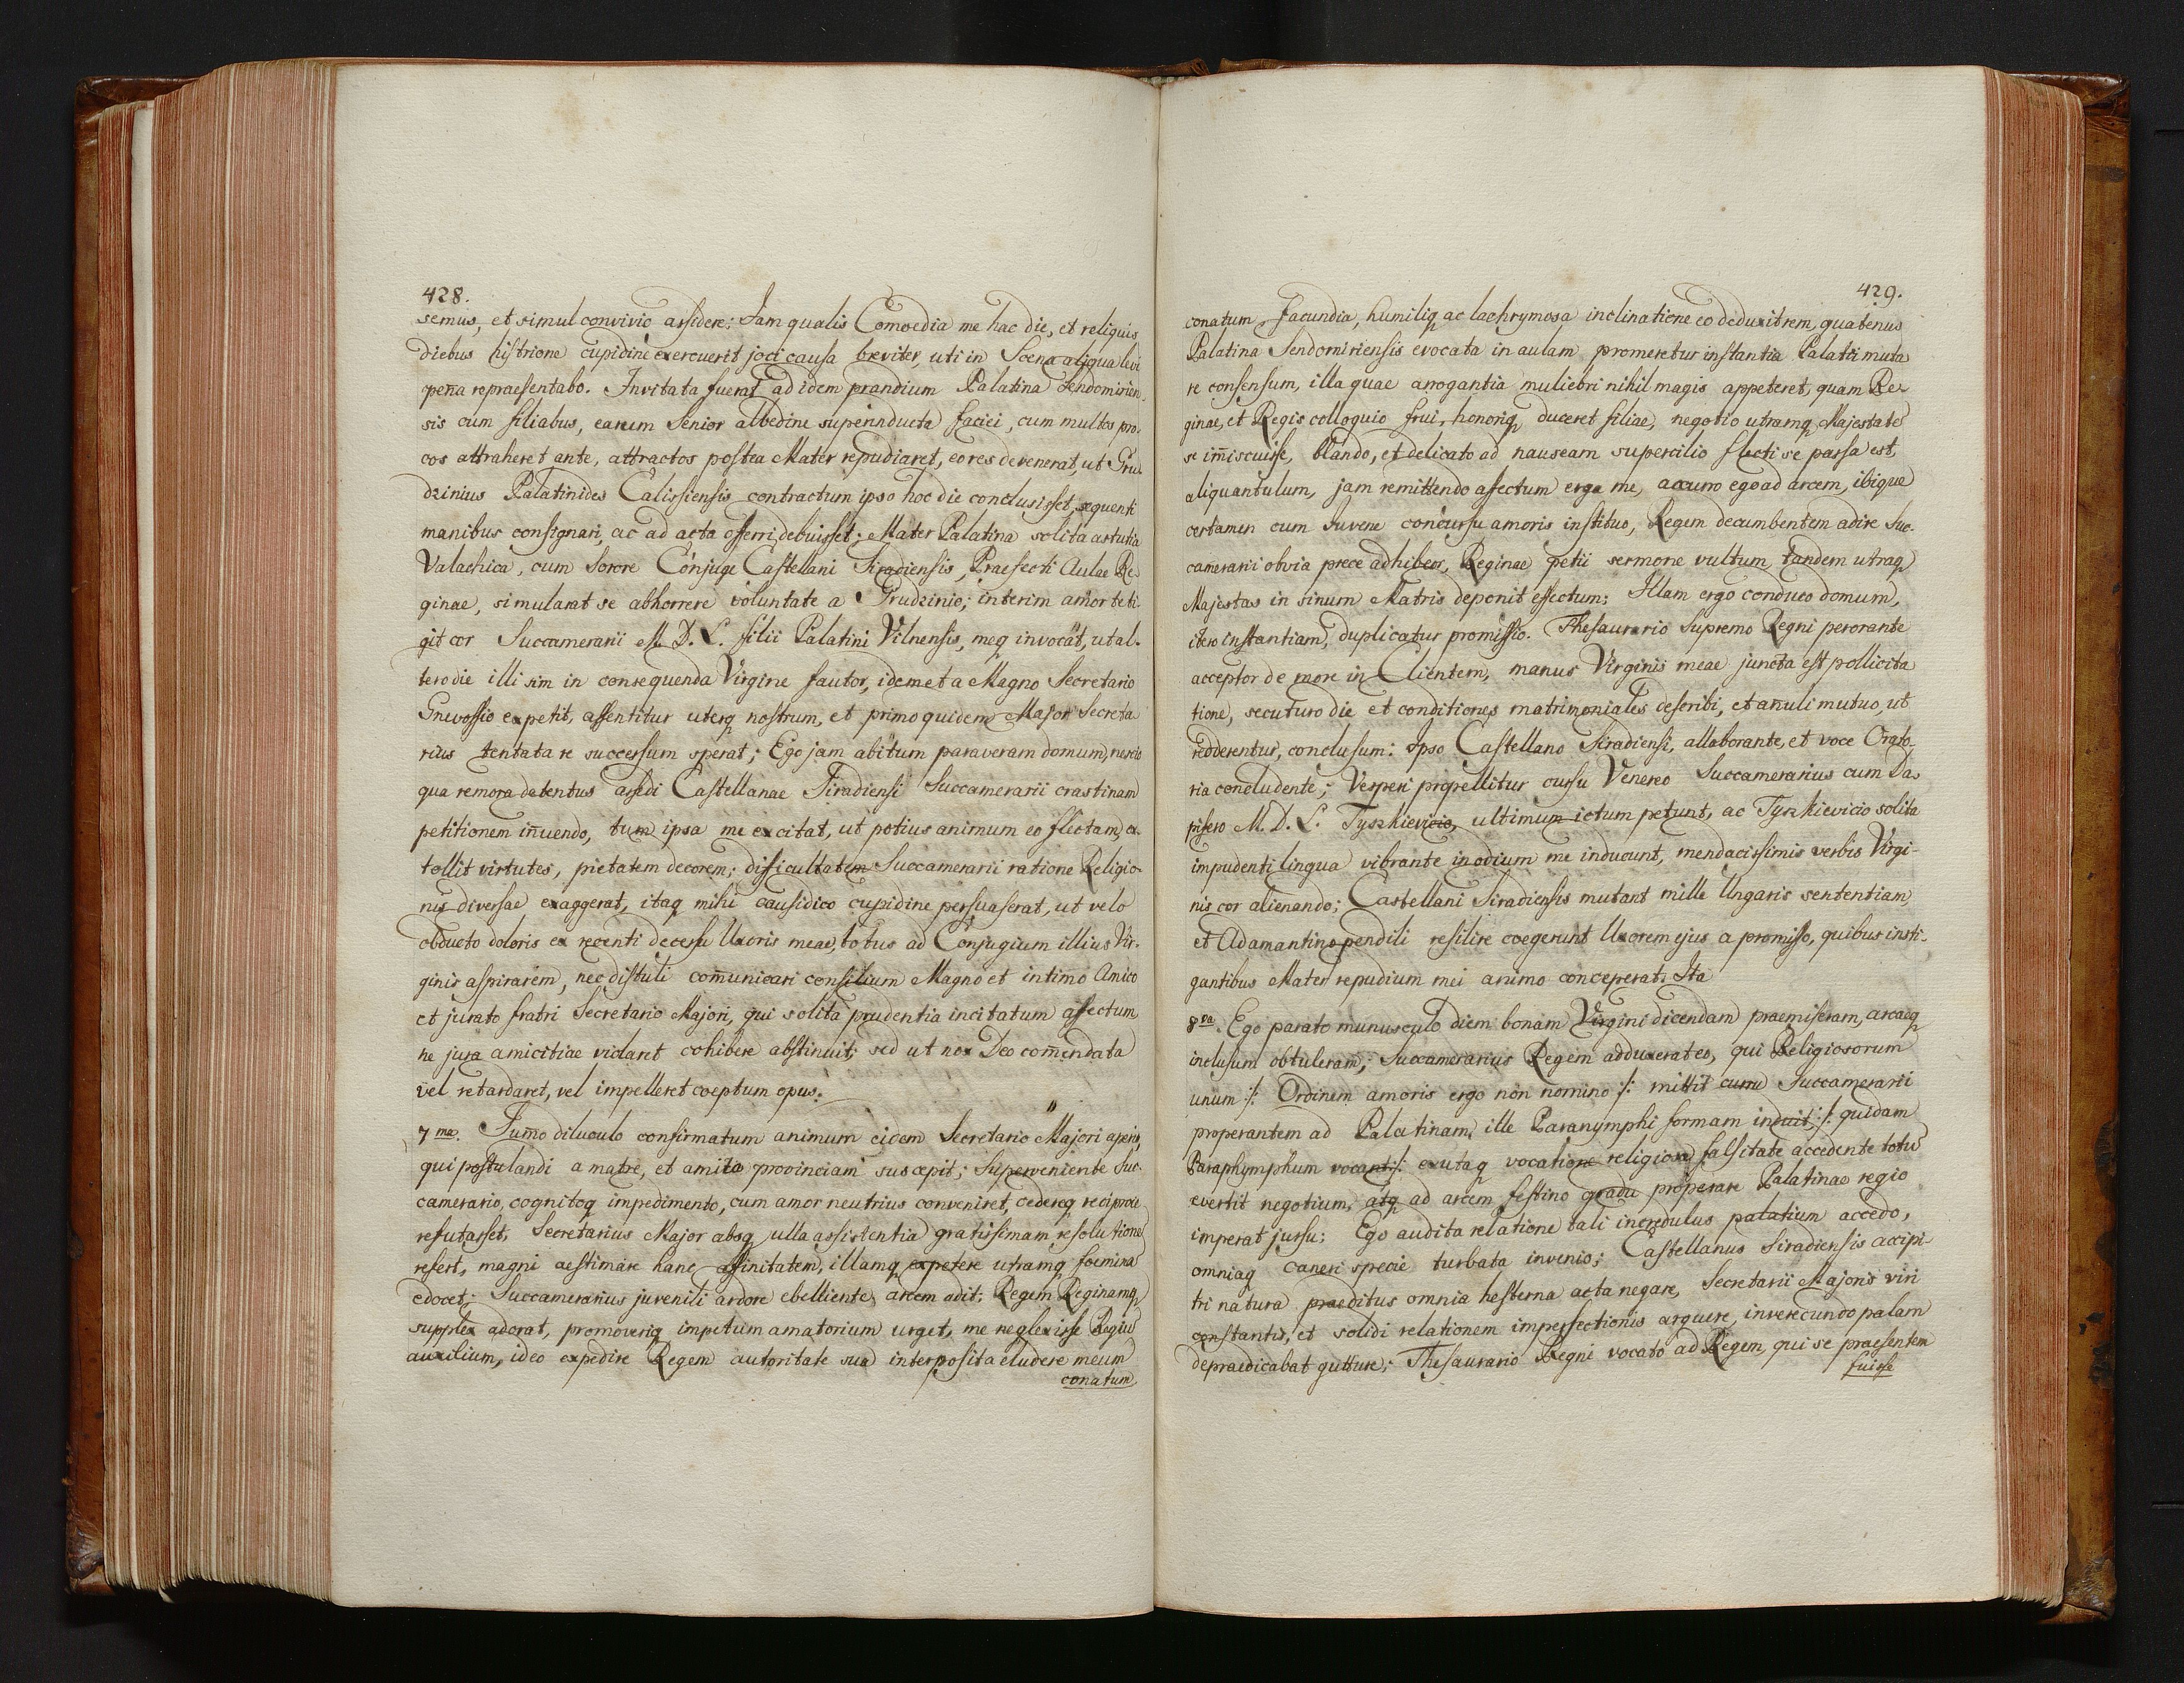 428.
semus, et simul convivio assidere; Jam qualis Comoedia me hac die, et reliquis
diebus histrione cupidine exercuerit joci causa breviter, uti in Scena aliqua levi
peña repraesentabo. Invitata fuerat ad idem prandium Palatina Sendomirien-
sis cum filiabus, earum Senior albedine superinducta faciei, cum multos pro-
cos attraheret ante, attractos postea Mater repudiaret, eo res devenerat, ut Gru-
dzinius Palatinides Calissiensis contractum ipso hoc die conclusisset, sequenti
manibus consignari, ac ad acta offerri debuisset; Mater Palatina solita astutia
Valachica, cum Sorore Conjuge Castellani Siradiensis, Praefecti Aulae Re-
ginae, simularat se abhorrere voluntate a Grudzinio; interim amor teti-
git cor Succamerarii M. D. L. filii Palatini Vilnensis, meq invocat, ut al-
tero die illi sim in consequenda Virgine fautor, idemet a Magno Secretario
Gnivossio expetit, assentitur uterq nostrum, et primo quidem Major Secreta
rius tentata re successum sperat; Ego jam abitum paraveram domum, nescio
qua remora detentus assedi Castellanae Siradiensi Succamerarii crastinam
petitionem iñuendo, tum ipsa me excitat, ut potius animum eo flectam, ex-
tollit virtutes, pietatem decorem; difficultatem Succamerarii ratione Religio-
nis diversae exaggerat, itaq mihi causidico cupidine persuaserat, ut velo
obducto doloris ex recenti decessu Uxoris meae, totus ad Conjugium illius Vir-
ginis aspirarem, nec distuli com̃unicari consilium Magno et intimo Amico
et jurato fratri Secretario Majori, qui solita prudentia incitatum affectum
ne jura amicitiae violaret cohibere abstinuit; sed ut nox Deo com̃endata
vel retardaret, vel impelleret coeptum opus.
7ma. Sum̃o diluculo confirmatum animum eidem Secretario Majori aperio,
qui postulandi a matre, et amita provinciam suscepit; Superveniente Suc-
camerario, cognitoq impedimento, cum amor neutrius conveniret, cedereq reciproce
refutasset, Secretarius Major absq ulla assistentia gratissimam resolutione
refert, magni aestimare hanc affinitatem, illamq expetere utramq foemina
edocet; Succamerarius juvenili ardore ebelliente, arcem adit; Regem Reginamq
supplex adorat, promoveriq impetum amatorium urget, me neglexisse Regiu
auxilium, ideo expedire Regem autoritate sua interposita eludere meum
conatum
429.
conatum facundia, humiliq ac lachrymosa inclinatione eo deduxit rem, quatenus
Palatina Sendomiriensis evocata in aulam promeretur instantia Palatii muta
re consensum, illa quae arrogantia muliebri nihil magis appeteret, quam Re-
ginae, et Regis colloquio frui, honoriq duceret filiae, negotio utramq Majestate
se im̃iscuisse, blando, et delicato ad nauseam supercilio flecti se passa est,
aliquantulum, jam remittendo affectum erga me, accurro ego ad arcem, ibique
certamen cum Juvene concursu amoris instituo, Regem decumbentem adire Suc-
camerarii obvia prece adhibeor, Reginae petii sermone vultum, tandem utraq
Majestas in sinum Matris deponit effectum; Illam ergo conduco domum,
itero instantiam, duplicatur promissio. Thesaurario Supremo Regni perorante
acceptor de more in Clientem, manus Virginis meae juncta est pollicita
tione, secuturo die et conditiones matrimoniales describi, et añuli mutuo, ut
redderentur, conclusum: Ipso Castellano Siradiensi, allaborante, et voce Orato-
ria concludente; Vesperi propellitur cursu Venereo Succamerarius cum Da-
pifero M. D. L. Tyszkievicio, ultimum ictum petunt, ac Tyszkievicio solita
impudenti lingua vibrante in odium me inducunt, mendacissimis verbis Virgi-
nis cor alienando; Castellani Siradiensis mutant mille Ungaris sententiam,
et Adamantino pendili resilire coegerunt Uxorem ejus a promisso, quibus insti-
gantibus Mater repudium mei animo conceperat. Ita
8va. Ego parato munusculo diem bonam Virgini dicendam praemiseram, arcaeq
inclusum obtuleram; Succamerarius Regem adduxerat eo, qui Religiosorum
unum /: Ordinem amoris ergo non nomino :/ mittit curru Succamerarii
properantem ad Palatinam, ille Paranymphi formam induit; /: quidam
Paraphymphum vocant :/ exutaq vocatione religiosa falsitate accedente totu
evertit negotium, atq ad arcem festino gradu properare Palatinae regio
imperat jussu; Ego audita relatione tali incredulus palatium accedo,
omniaq Caneri specie turbata invenio; Castellanus Siradiensis accipi-
tri natura praeditus omnia hesterna acta negare, Secretarii Majoris viri
constantis, et solidi relationem imperfectionis arguere, inverecundo palam
depraedicabat gutture; Thesaurario Regni vocato ad Regem, qui se praesentem
fuisse